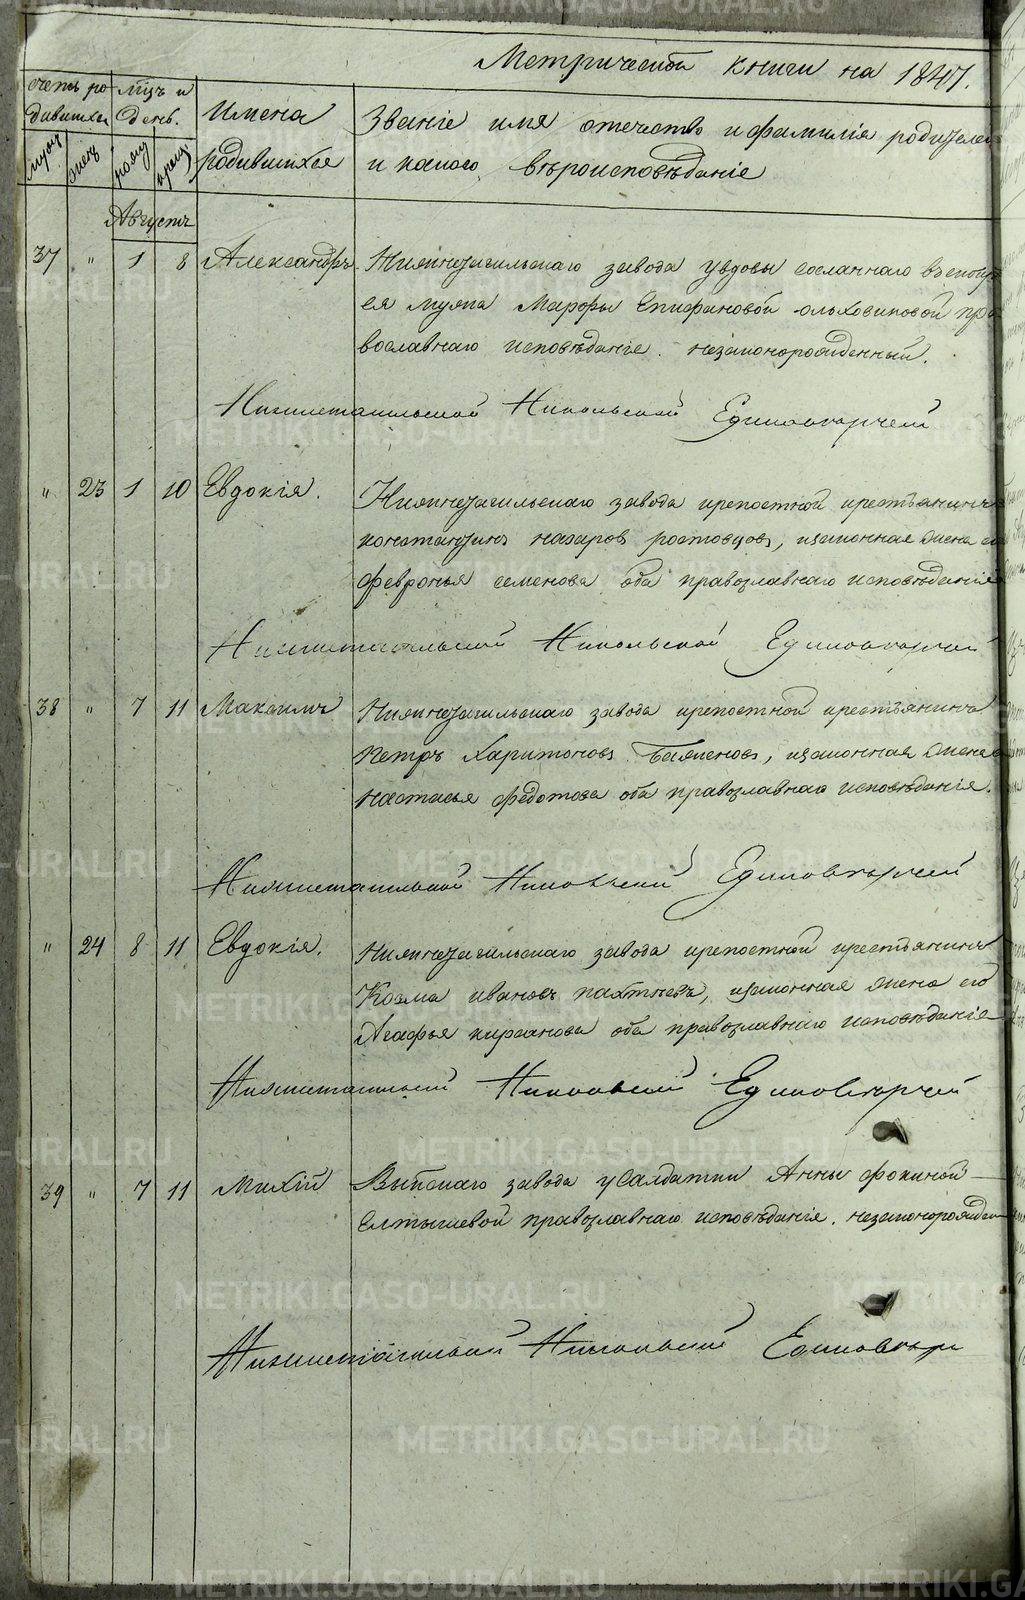 Метрической книги на 1847.
счетъ ро- мцъ и
дившихся день.
Имена
родившихся
Званіе имя отечество и фамилія родителей
и какого вѣроисповѣданіе
муж женс рожд крещ
Августъ
37 " 1 8 Александръ. Нижнетагильскаго завода у вдовы сосланнаго
ея мужа Марфы Епифановой Ольховиковой пра-
вославнаго исповѣданіе. незаконорожденный.
Нижнетагильской Никольской Единоверчей
" 23 1 10 Евдокія. Нижнетагильскаго завода крепостной крестьянинъ
константинъ назаровъ ростовцовъ, изаконная жена его
февронья семенова оба православнаго исповѣданія
Нижнетагильской Никольской Единоверчей
38 " 7 11 Максимъ Нижнетагильскаго завода крепостной крестьянинъ
Петръ Харитоновъ Баженовъ, изаконная жена
Настасья федотова оба православнаго исповѣданія.
Нижнетагильской Никольской Единоверчей
" 24 8 11 Евдокія. Нижнетагильскаго завода крепостной крестьянинъ
Козма ивановъ пахтневъ, изаконная жена его
Агафья кирсанова оба православнаго исповѣданіе
Нижнетагильской Никольской Единоверчей
39 " 7 11 Михій Выйскаго завода у Салдатки Анны фокиной
Елтышевой православнаго исповѣданія. незаконорожден
Нижнетагильской Никольской Единовер
METRIKI.GASO-URAL.RU